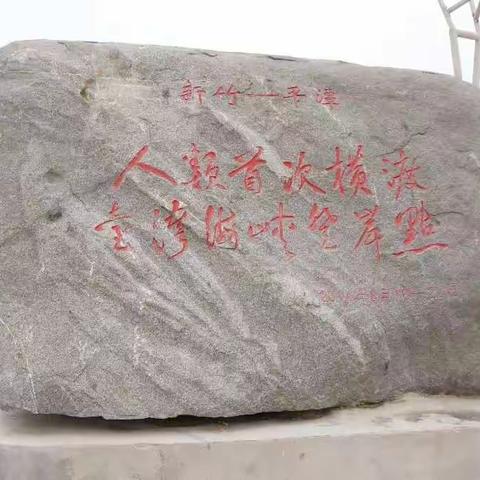 新竹—平潭
人類首次橫渡
臺灣海峽登岸點